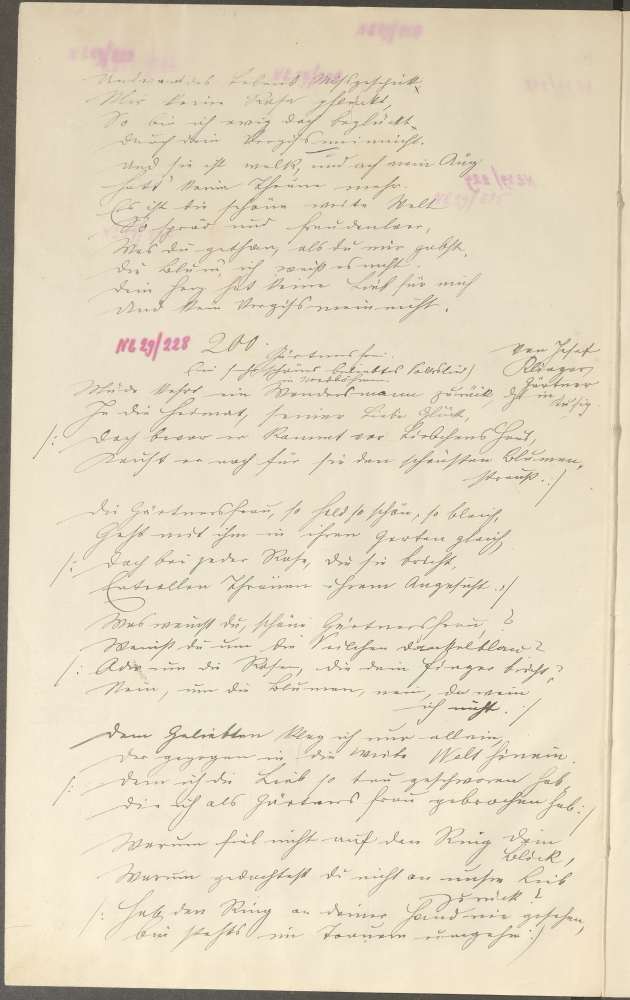 Und wenn des Lebens Missgeschick
Mir keine Rose pflückt,
So bin ich ewig doch beglückt
Durch dein Vergissmeinnicht.
Und sie ist welk, und ach mein Aug
hat kein Thräne mehr.
Es ist die schöne weite Welt
So und freudenleer,
Was du gethan, als du mir gabst,
die Blum, ich weiß es nicht.
Dein Herz hat keine Lieb für mich
Und kein Vergissmeinnicht.
NE 29/228 200. Gärtnersfrau. von Josef
(Ein sehr schönes beliebtes Volkslied) Klinger
Gärtner
Müde kehrt ein Wandersmann zurück, in Aussig.
In die Heimat, seiner Liebe Glück,
/: Doch bevor er kommt vor Liebchens Haus,
Kauft er noch für sie den schönsten Blumen,
strauß. :/
Die Gärtnersfrau, so hold so schön, so bleich,
Geht mit ihm in ihren Garten gleich,
/: Doch bei jeder Rose, die sie bricht,
Entrollen Thränen ihrem Angesicht :/
Was weinst du, schöne Gärtnersfrau?
Weinst du um die Veilchen dunkelblau?
/: Oder um die Rosen, die dein Finger bricht?
Nein, um die Blumen, nein, da wein
ich nicht. :/
Dem Geliebten klag ich nur allein,
Der gezogen in die weite Welt hinein.
/: Dem ich die Lieb so treu geschworen hab,
Die ich als Gärtnersfrau gebrochen hab :/
Warum fiel nicht auf den Ring dein
Blick,
Warum gedachtest du nicht an unsre Lieb
zurück?
/: Hab den Ring an deiner Hand nie gesehen,
bin stehts im Traum :/